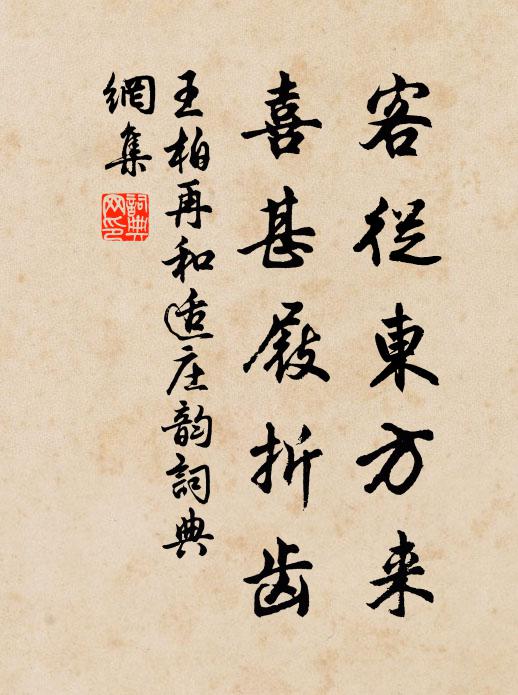 客從東方来
喜甚屐折齿
王柏再和适庄韵詞典
網集
詞典
网印